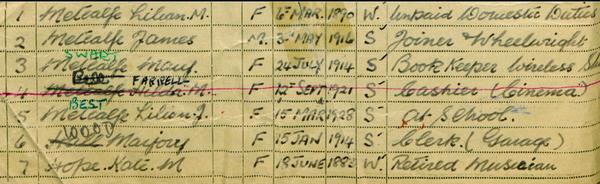 1 Metcalfe Lilian. M. F 16 MAR. 1890 W. Unpaid Domestic Duties
2 Metcalfe James M. 3rd MAY 1916 S Joiner & Wheelwright
SWART
3 Metcalfe Mary. F 24 JULY 1914 S Book Keeper Wireless
FARRELL
4 Metcalfe M. F 12th SEPT 1921 S Cashier (Cinema)
BEST
5 Metcalfe Lilian. J. F 15 MAR 1928 S at School.
WOOD
6 Marjory F 15 JAN 1914 S Clerk. (Garage)
7 Hope. Kate. M F 18 JUNE 1883 W. Retired Musician